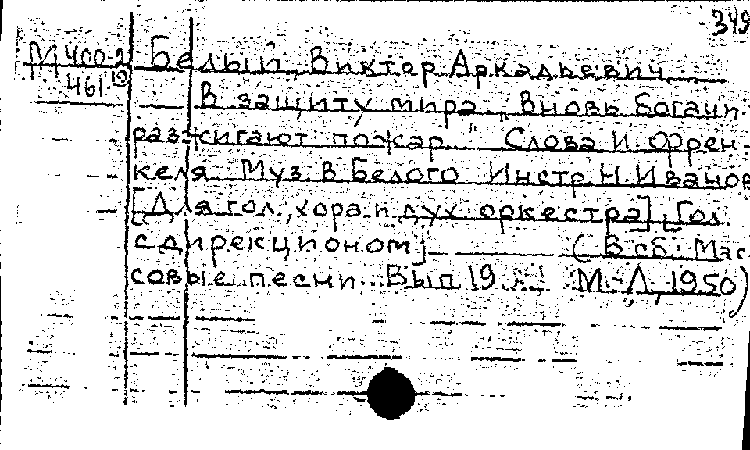 349
М 400-2 Белый, Виктор Аркадьевич.
461 В защиту мира. "Вновь богачи
разжигают пожар..." Слова И. Френ-
келя. Муз. В. Белого. Инстр. Н. Иванов
[Для гол., хора и дух. оркестра]. [Гол.
с дирекционом] (В сб.: Мас-
совые песни. Вып. 19. М.-Л., 1950)